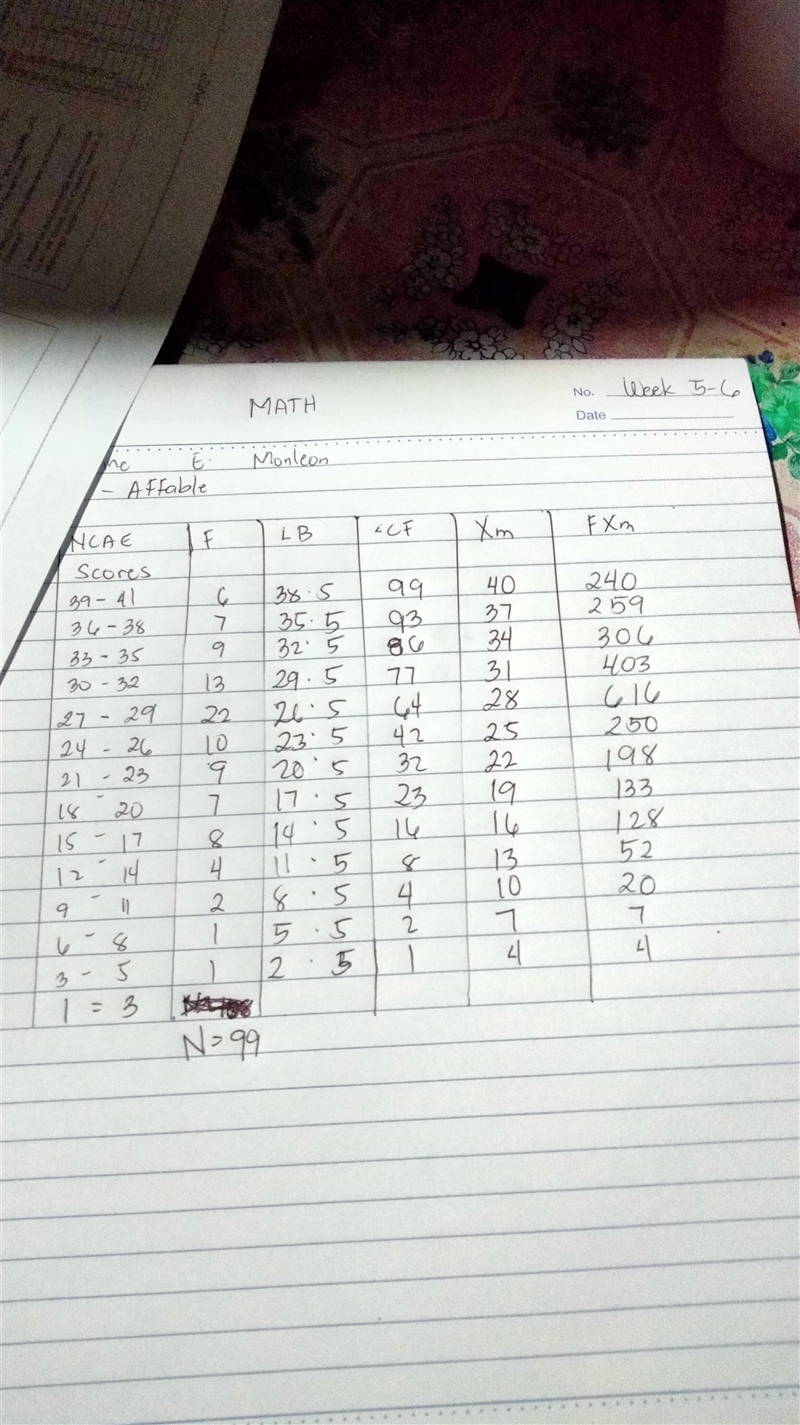 MATH
No. Week 5-6
Date
E. Monleon
- Affable
NCAE Scores F LB <CF Xm FXm
39 - 41 6 38.5 99 40 240
36 - 38 7 35.5 93 37 259
33 - 35 9 32.5 86 34 306
30 - 32 13 29.5 77 31 403
27 - 29 22 26.5 64 28 616
24 - 26 10 23.5 42 25 250
21 - 23 9 20.5 32 22 198
18 - 20 7 17.5 23 19 133
15 - 17 8 14.5 16 16 128
12 - 14 4 11.5 8 13 52
9 - 11 2 8.5 4 10 20
6 - 8 1 5.5 2 7 7
3 - 5 1 2.5 1 4 4
i = 3
N=99